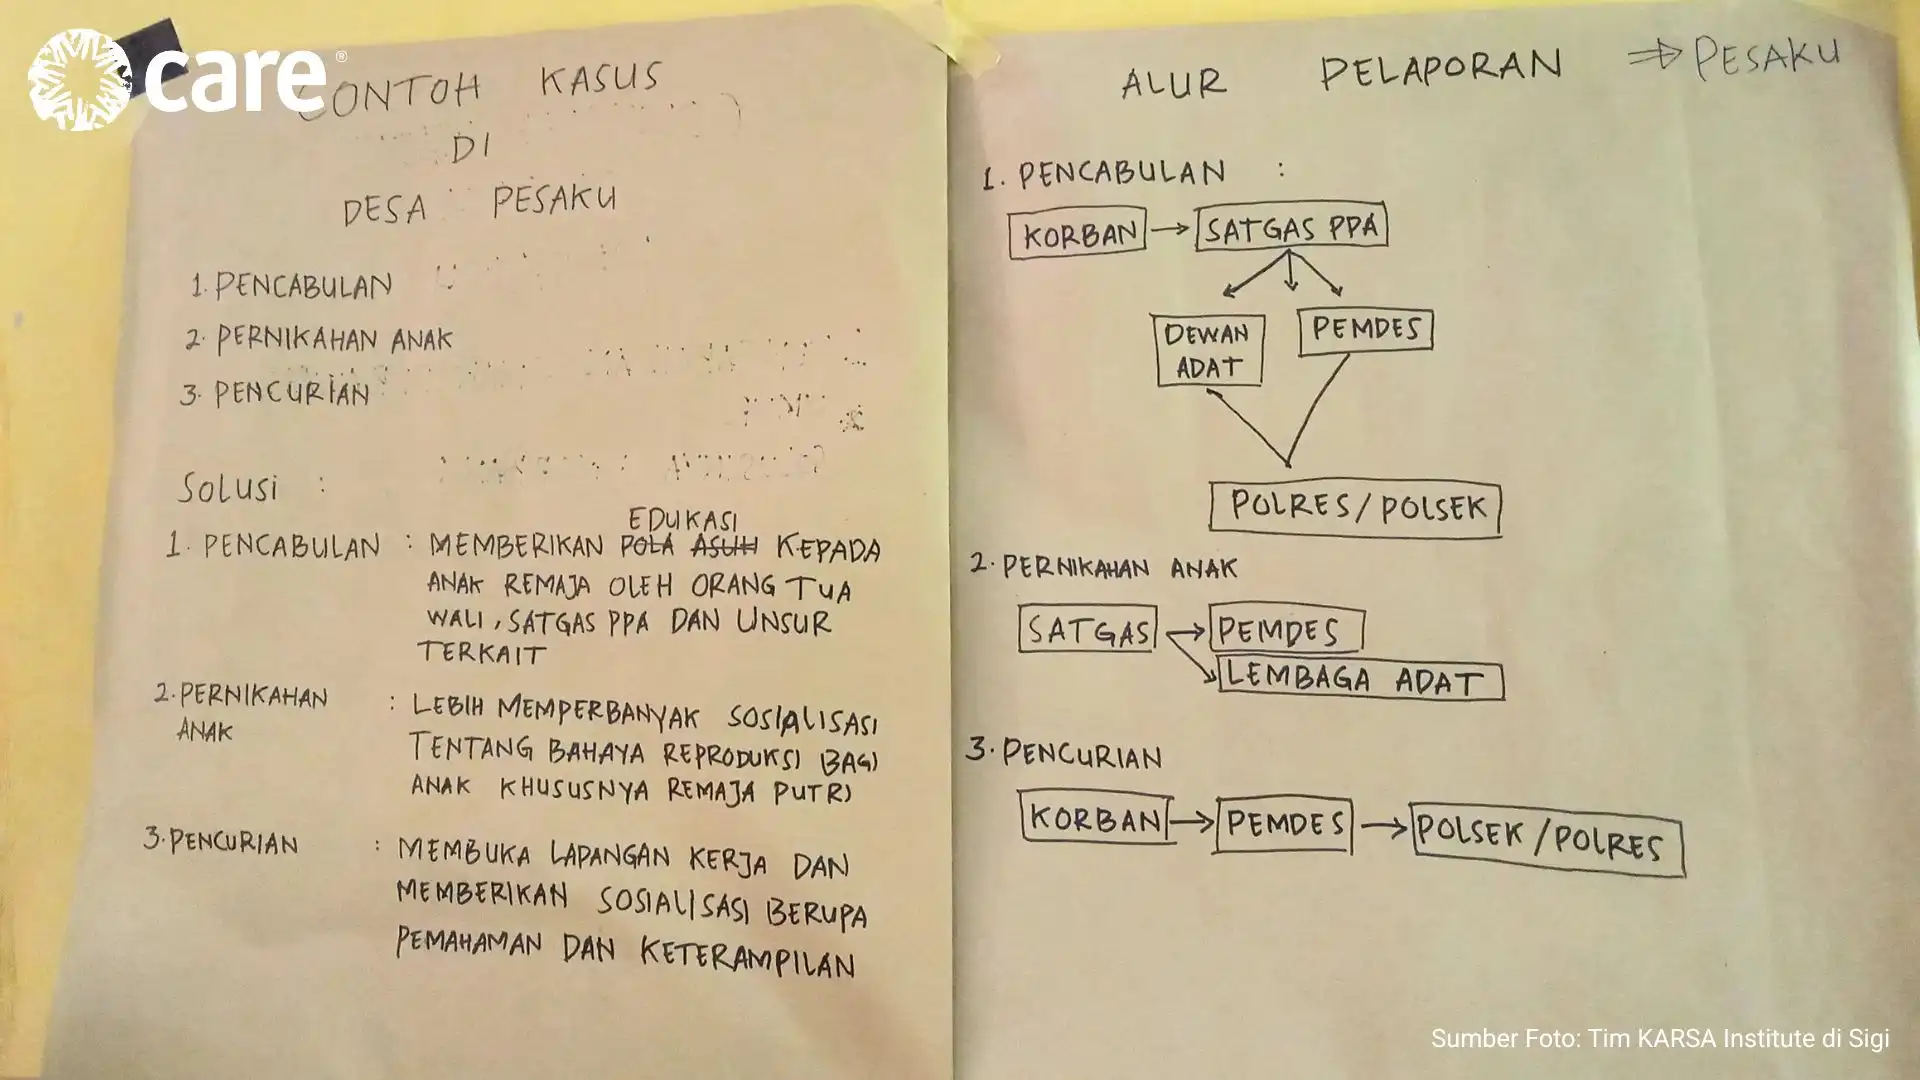 care®
CONTOH KASUS
DI
DESA PESAKU
1. PENCABULAN
2. PERNIKAHAN ANAK
3. PENCURIAN
SOLUSI :
EDUKASI
1. PENCABULAN : MEMBERIKAN POLA ASUH KEPADA
ANAK REMAJA OLEH ORANG TUA
WALI, SATGAS PPA DAN UNSUR
TERKAIT
2. PERNIKAHAN : LEBIH MEMPERBANYAK SOSIALISASI
ANAK
TENTANG BAHAYA REPRODUKSI BAGI
ANAK KHUSUSNYA REMAJA PUTRI
3. PENCURIAN : MEMBUKA LAPANGAN KERJA DAN
MEMBERIKAN SOSIALISASI BERUPA
PEMAHAMAN DAN KETERAMPILAN
ALUR PELAPORAN ⇒ PESAKU
1. PENCABULAN :
KORBAN → SATGAS PPA
DEWAN
ADAT
PEMDES
POLRES/POLSEK
2. PERNIKAHAN ANAK
SATGAS → PEMDES
LEMBAGA ADAT
3. PENCURIAN
KORBAN → PEMDES → POLSEK/POLRES
Sumber Foto: Tim KARSA Institute di Sigi